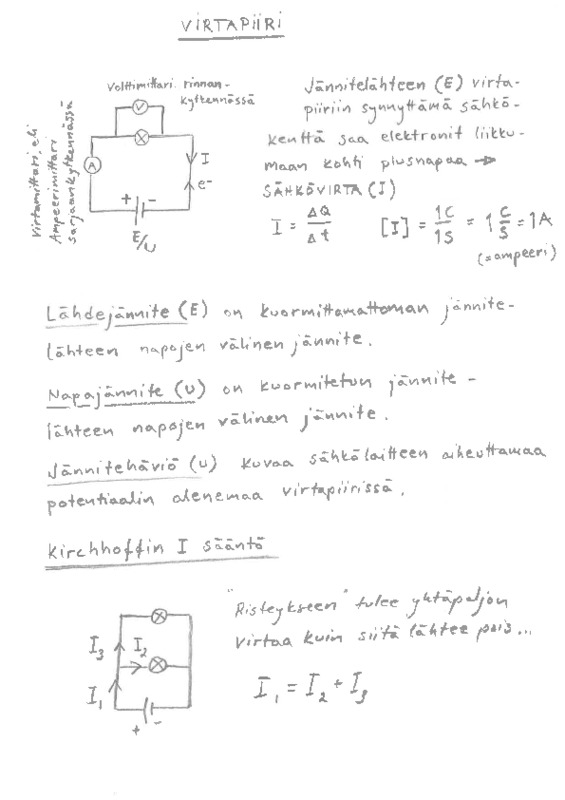 VIRTAPIIRI
Volttimittari rinnan-
kytkennässä
V
A
I
e-
+ -
E/U
Virtamittari, eli
Ampeerimittari
sarjaankytkennässä
Jännitelähteen (E) virta-
piiriin synnyttämä sähkö-
kenttä saa elektronit liikku-
maan kohti plusnapaa →
SÄHKÖVIRTA (I)
I = ΔQ/Δt [I] = 1C/1S = 1 C/S = 1A
(=ampeeri)
Lähdejännite (E) on kuormittamattoman jännite-
lähteen napojen välinen jännite.
Napajännite (U) on kuormitetun jännite -
lähteen napojen välinen jännite.
Jännitehäviö (U) kuvaa sähkölaitteen aiheuttamaa
potentiaalin alenemaa virtapiirissä.
Kirchhoffin I sääntö
"Risteykseen" tulee yhtäpaljon
virtaa kuin siitä lähtee pois...
I₁ = I₂ + I₃
I₃ I₂
I₁
+ -